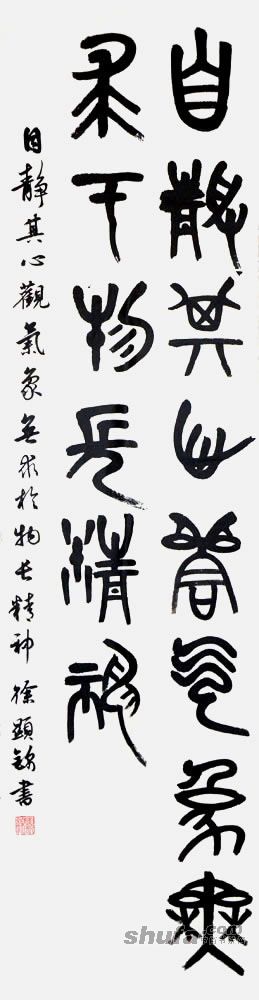 自靜其心觀气象無
求于物長精神
自靜其心觀氣象無求於物長精神 徐顯書
shufa.com